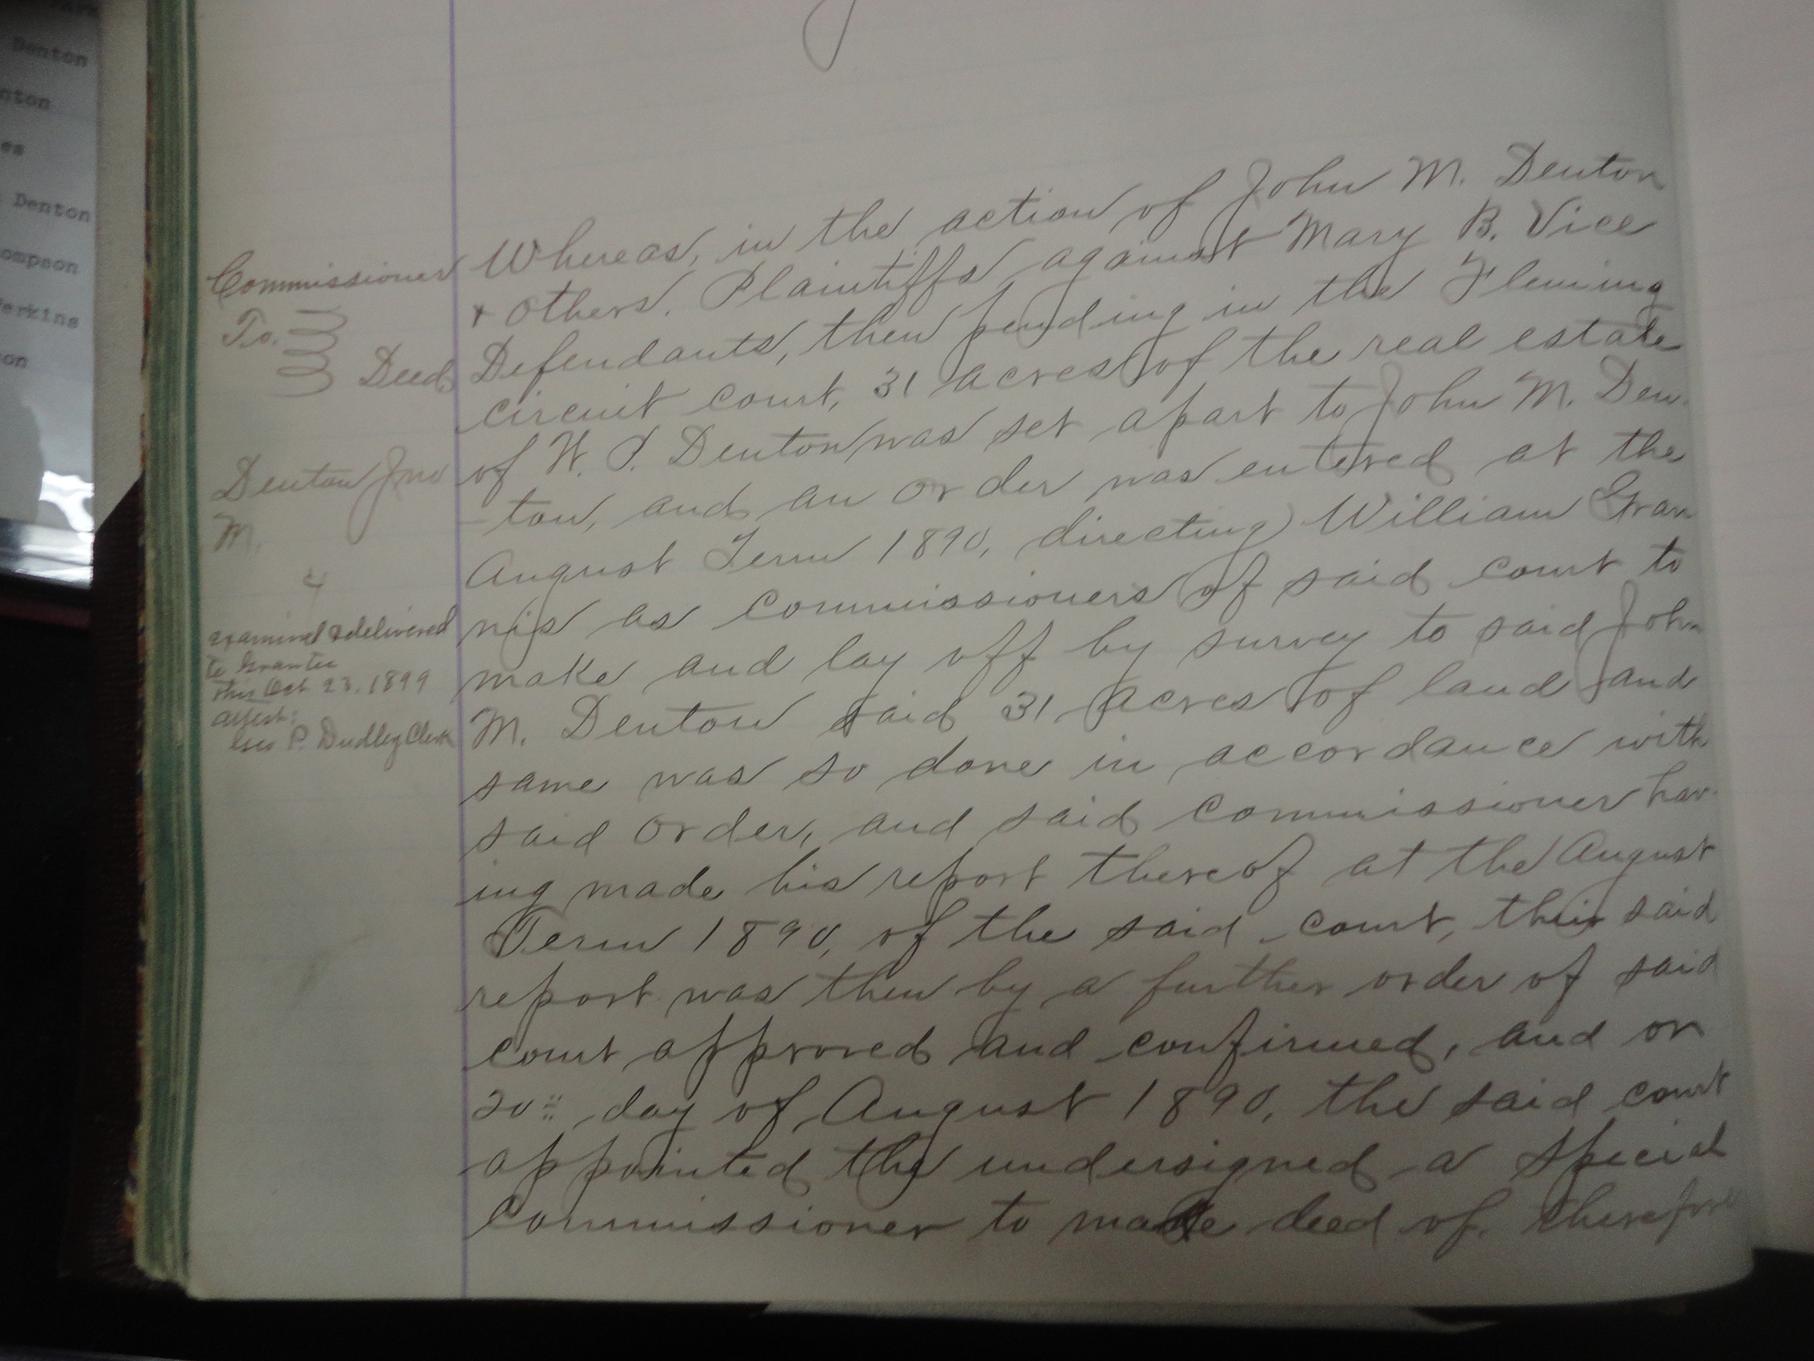 Denton
nton
es
Denton
ompson
erkins
on
Commissioner
To.
Deed
Denton Jno
M.
4
examined & delivered
to Grantee
this Oct 23. 1899
attest:
Geo P. Dudley Clerk
Whereas, in the action of John M. Denton
& others. Plaintiffs against Mary B. Vice
Defendants, then pending in the Fleming
circuit court, 31 acres of the real estate
of W. P. Denton was set apart to John M. Den-
-ton, and an order was entered at the
August Term 1890, directing William Gran
nis as commissioners of said court to
make and lay off by survey to said John
M. Denton said 31 acres of land and
same was so done in accordance with
said order, and said commissioner hav-
ing made his report thereof at the August
Term 1890, of the said court, this said
report was then by a further order of said
court approved and confirmed, and on
20" day of August 1890, the said court
appointed the undersigned a special
Commissioner to make deed of. therefore